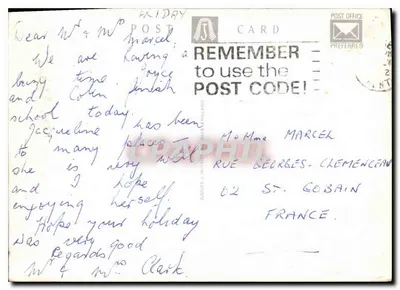 FRIDAY
POST CARD
POST OFFICE
PREFERRED
REMEMBER
to use the
POST CODE!
Dear Mr & Mrs Marcel,
We are having a
busy time. Joyce
and Colin finish
school today.
Jacqueline has been
to many places
she is very well
and I hope
enjoying herself.
Hope your holiday
was very good
Regards
Mr & Mrs Clark.
M. Mme MARCEL
RUE GEORGES-CLEMENCEAU
02 ST. GOBAIN
FRANCE.